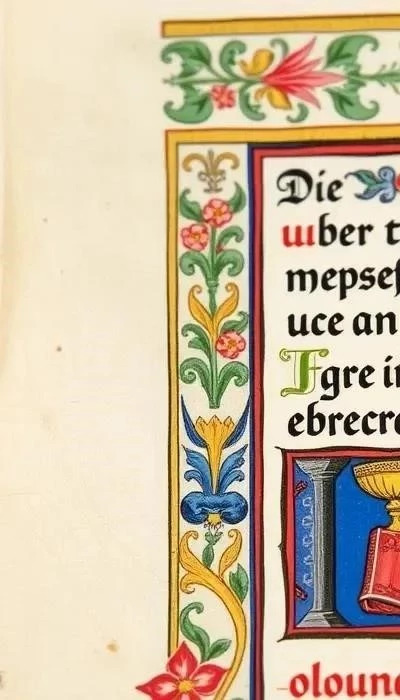 Die
uber t
mepses
uce an
Fgre in
ebrecre
-oloun